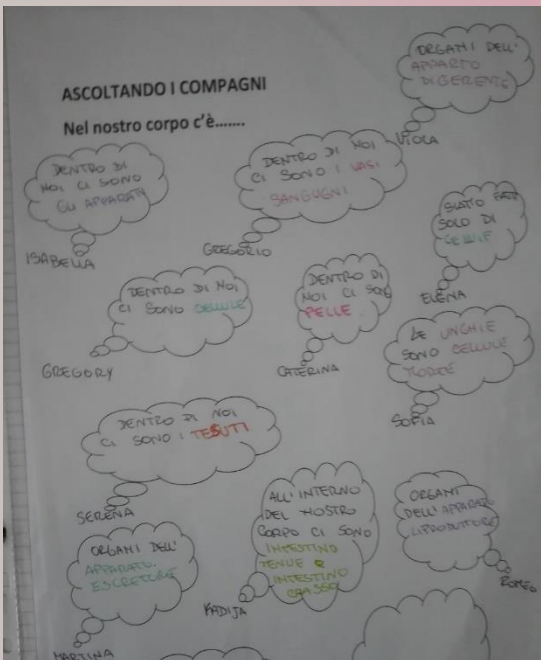 ASCOLTANDO I COMPAGNI
Nel nostro corpo c'è.......
ORGANI DELL'
APPARATO
DIGERENTE
VIOLA
DENTRO DI
NOI CI SONO
GLI APPARATI
ISABELLA
DENTRO DI NOI
CI SONO I VASI
SANGUGNI
GREGORIO
SOLO DI
CELLULE
ELENA
DENTRO DI NOI
CI SONO CELLULE
GREGORY
DENTRO DI
NOI CI SONO
PELLE
CATERINA
LE UNGHIE
SONO CELLULE
MORTE
SOFIA
DENTRO DI NOI
CI SONO I TESUTI
SERENA
ALL'INTERNO
DEL NOSTRO
CORPO CI SONO
INTESTINO
TENUE E
INTESTINO
CRASSO
KADIJA
ORGANI
DELL'APPARATO
RIPRODUTTORE
ROMEO
ORGANI DELL'
APPARATO
ESCRETORE
MARTINA